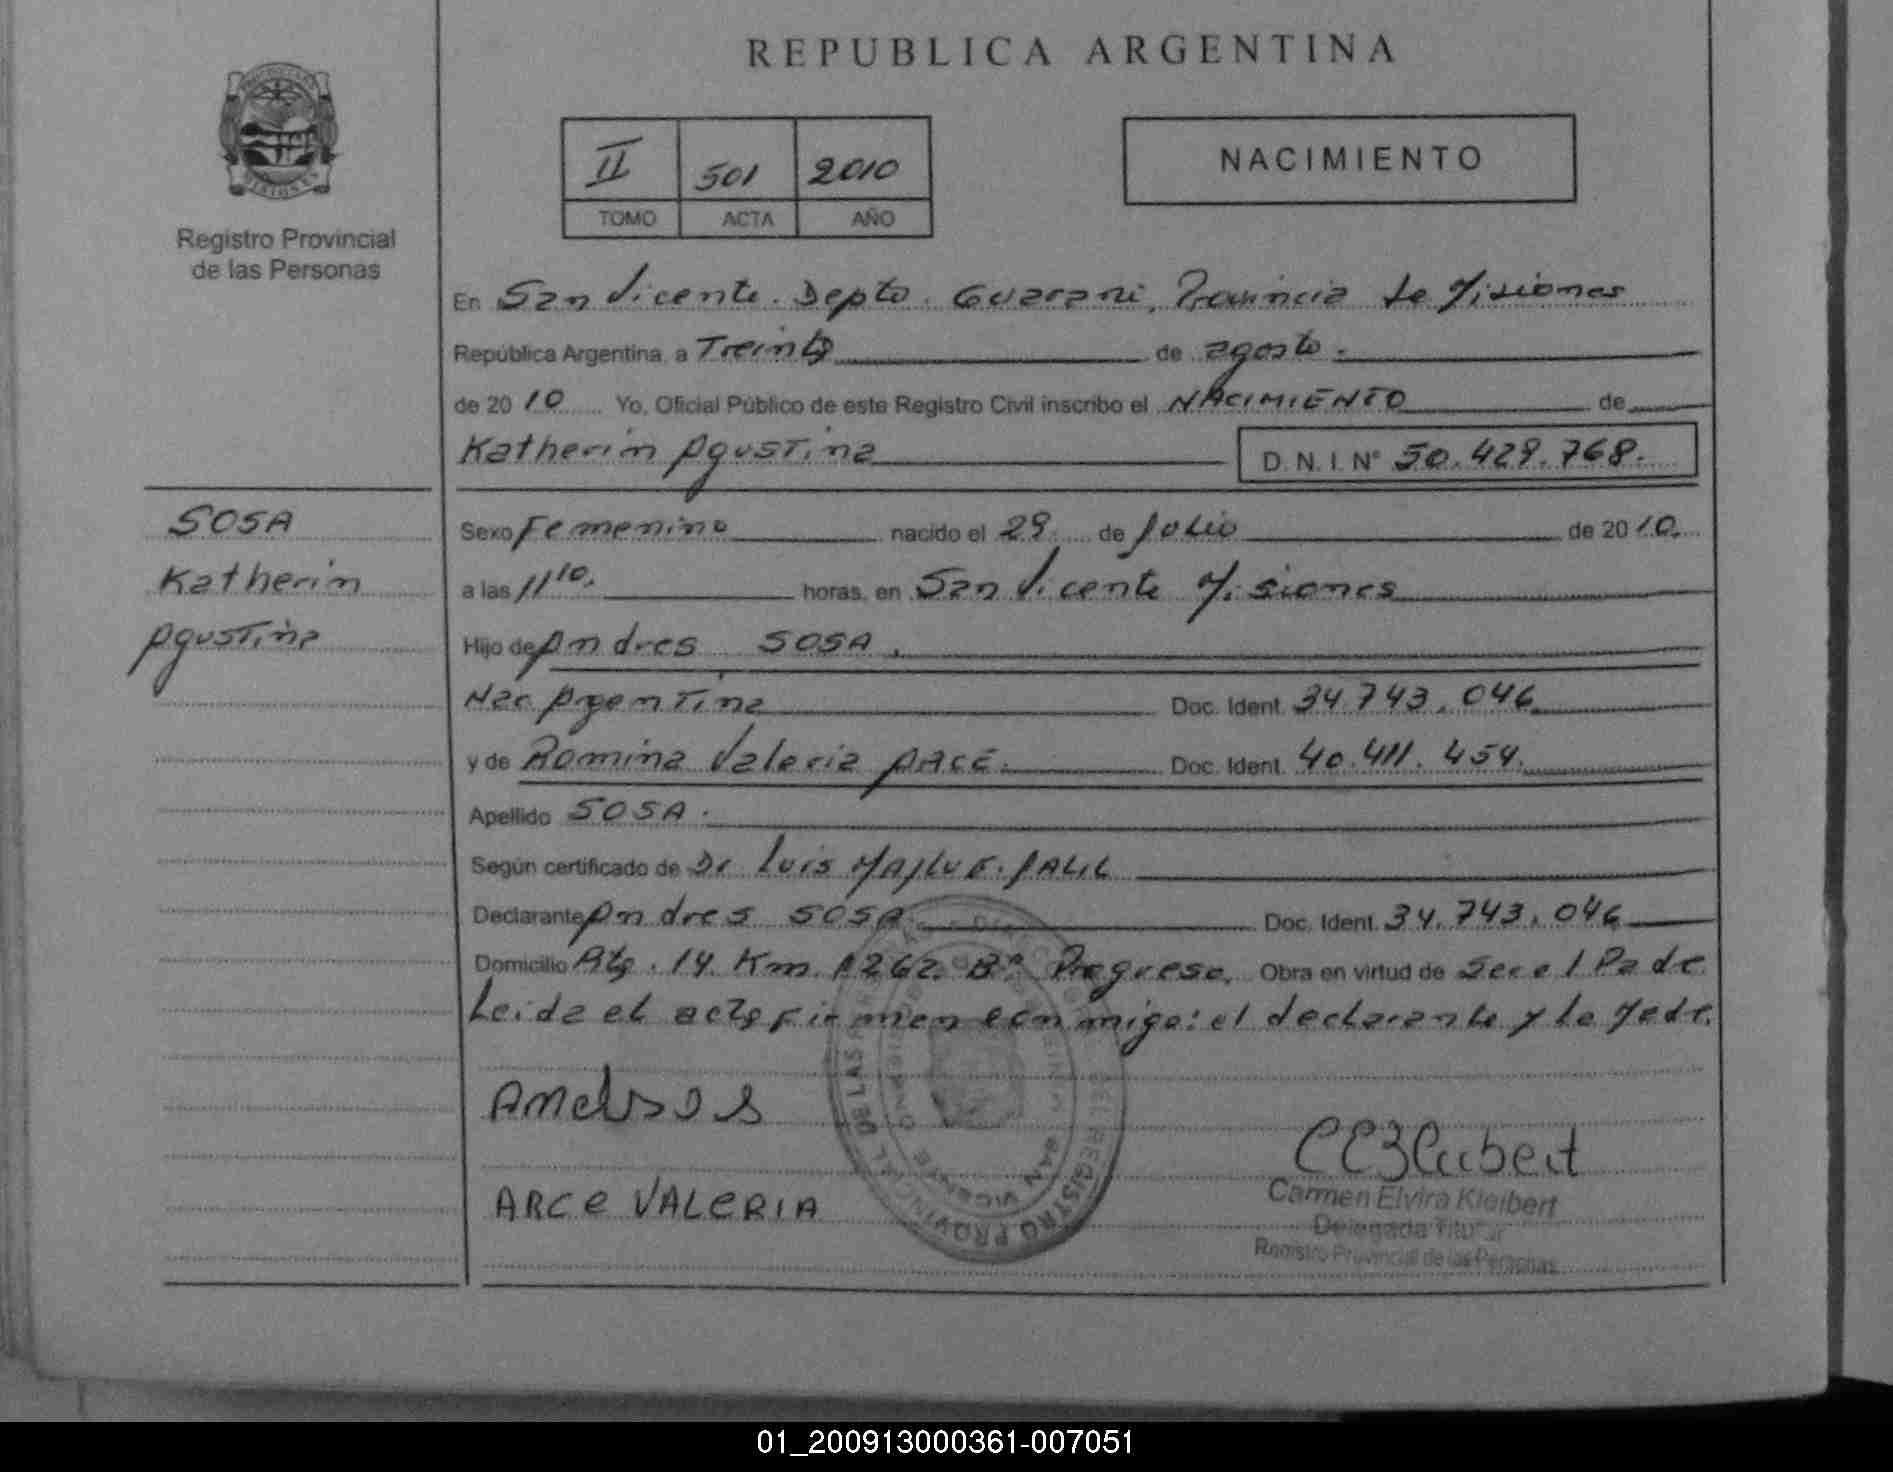 REPUBLICA ARGENTINA
Registro Provincial
de las Personas
II 501 2010
TOMO ACTA AÑO
NACIMIENTO
En San Vicente. Depto. Guarani, Provincia de Misiones
República Argentina, a Treinta de agosto.
de 2010 Yo, Oficial Público de este Registro Civil inscribo el NACIMIENTO de
Katherin Agustina D.N.I. Nº 50.429.768.
SOSA
Katherin
Agustina
Sexo Femenino nacido el 29 de Julio de 2010.
a las 11 10. horas, en San Vicente Misiones
Hijo de Andres SOSA.
Nac Argentina Doc. Ident. 34.743.046
y de Romina Valeria ARCE. Doc. Ident. 40.411.454.
Apellido SOSA.
Según certificado de Dr Luis JALIL
Declarante Andres SOSA Doc. Ident. 34.743.046
Domicilio Rta. 14 Km 1262. Bº Progreso. Obra en virtud de Ser el Padre
Leida el acta firman conmigo: el declarante y la Madre.
ARCE VALERIA
DE LAS PERSONAS
DEL REGISTRO PROVINCIAL
SAN VICENTE
Carmen Elvira Kleibert
Delegada Titular
Registro Provincial de las Personas
01_200913000361-007051